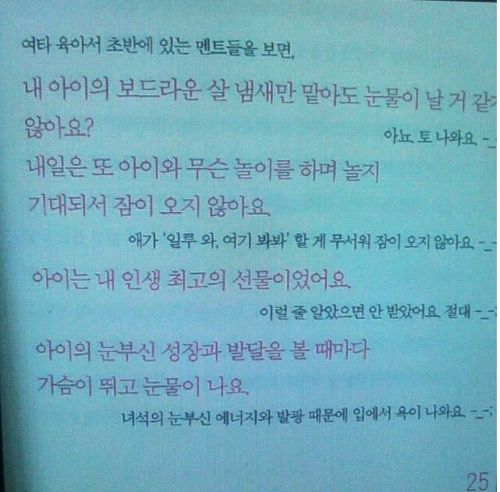 여타 육아서 초반에 있는 멘트들을 보면,
내 아이의 보드라운 살 냄새만 맡아도 눈물이 날 거 같지
않아요?
아뇨. 토 나와요. -_-
내일은 또 아이와 무슨 놀이를 하며 놀지
기대되서 잠이 오지 않아요.
애가 '일루 와, 여기 봐봐' 할 게 무서워 잠이 오지 않아요. -_-
아이는 내 인생 최고의 선물이었어요.
이럴 줄 알았으면 안 받았어요. 절대 -_-
아이의 눈부신 성장과 발달을 볼 때마다
가슴이 뛰고 눈물이 나요.
녀석의 눈부신 에너지와 발광 때문에 입에서 욕이 나와요. -_-;
25